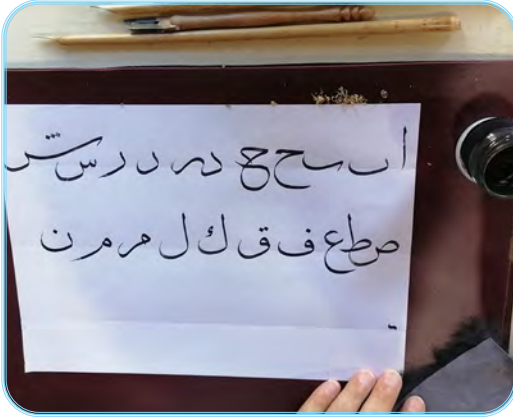 ا ٮ ح ح د ر د ر س ش
ص ط ع ف ق ك ل م م ن